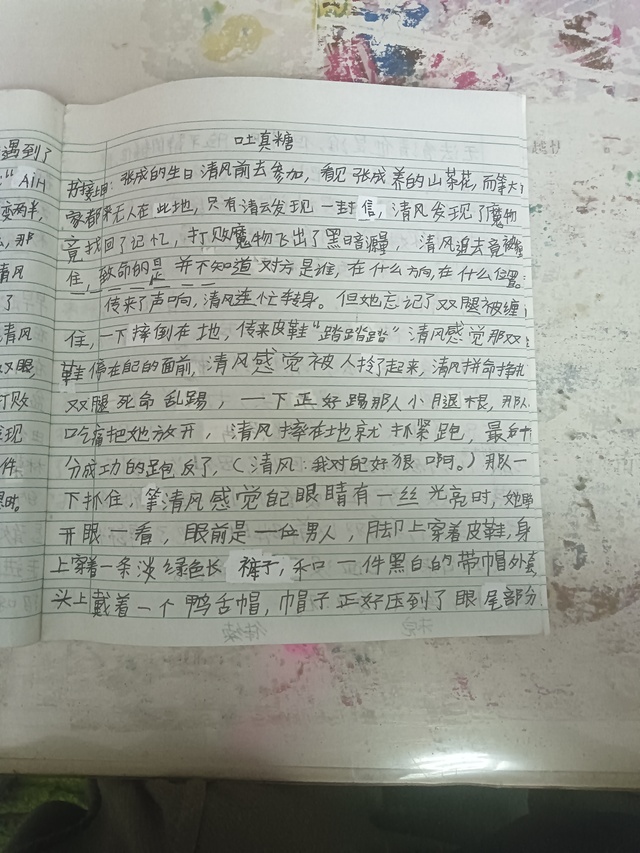 遇到了
" AiH
变两半,
那
清风
了
清风
双眼,
打败
发现
件
吐真糖
书接上回: 张成的生日清风前去参加, 看见张成养的山茶花, 而等大
家都来无人在此地, 只有清云发现一封信, 清风发现了魔物
竟找回了记忆, 打败魔物飞出了黑暗漩, 清风追去竟被缠
住, 致命的是 并不知道对方是谁, 在什么方向, 在什么位置。
传来了声响, 清风连忙转身。但她忘记了双腿被缠
住, 一下摔倒在地, 传来皮鞋"踏踏踏踏"清风感觉那双
鞋停在自己的面前, 清风感觉被人拎了起来, 清风拼命挣扎
双腿死命乱踢, 一下正好踢那人小腿根, 那人
吃痛把她放开, 清风摔在地就抓紧跑, 最后十
分成功的跑反了, (清风: 我对自己好狠啊。) 那人一
下抓住, 等清风感觉自己眼睛有一丝光亮时, 她睁
开眼一看, 眼前是一位男人, 脚上穿着皮鞋, 身
上穿着一条淡绿色长裤子, 和一件黑白的带帽外套
头上戴着一个鸭舌帽, 帽子正好压到了眼尾部分